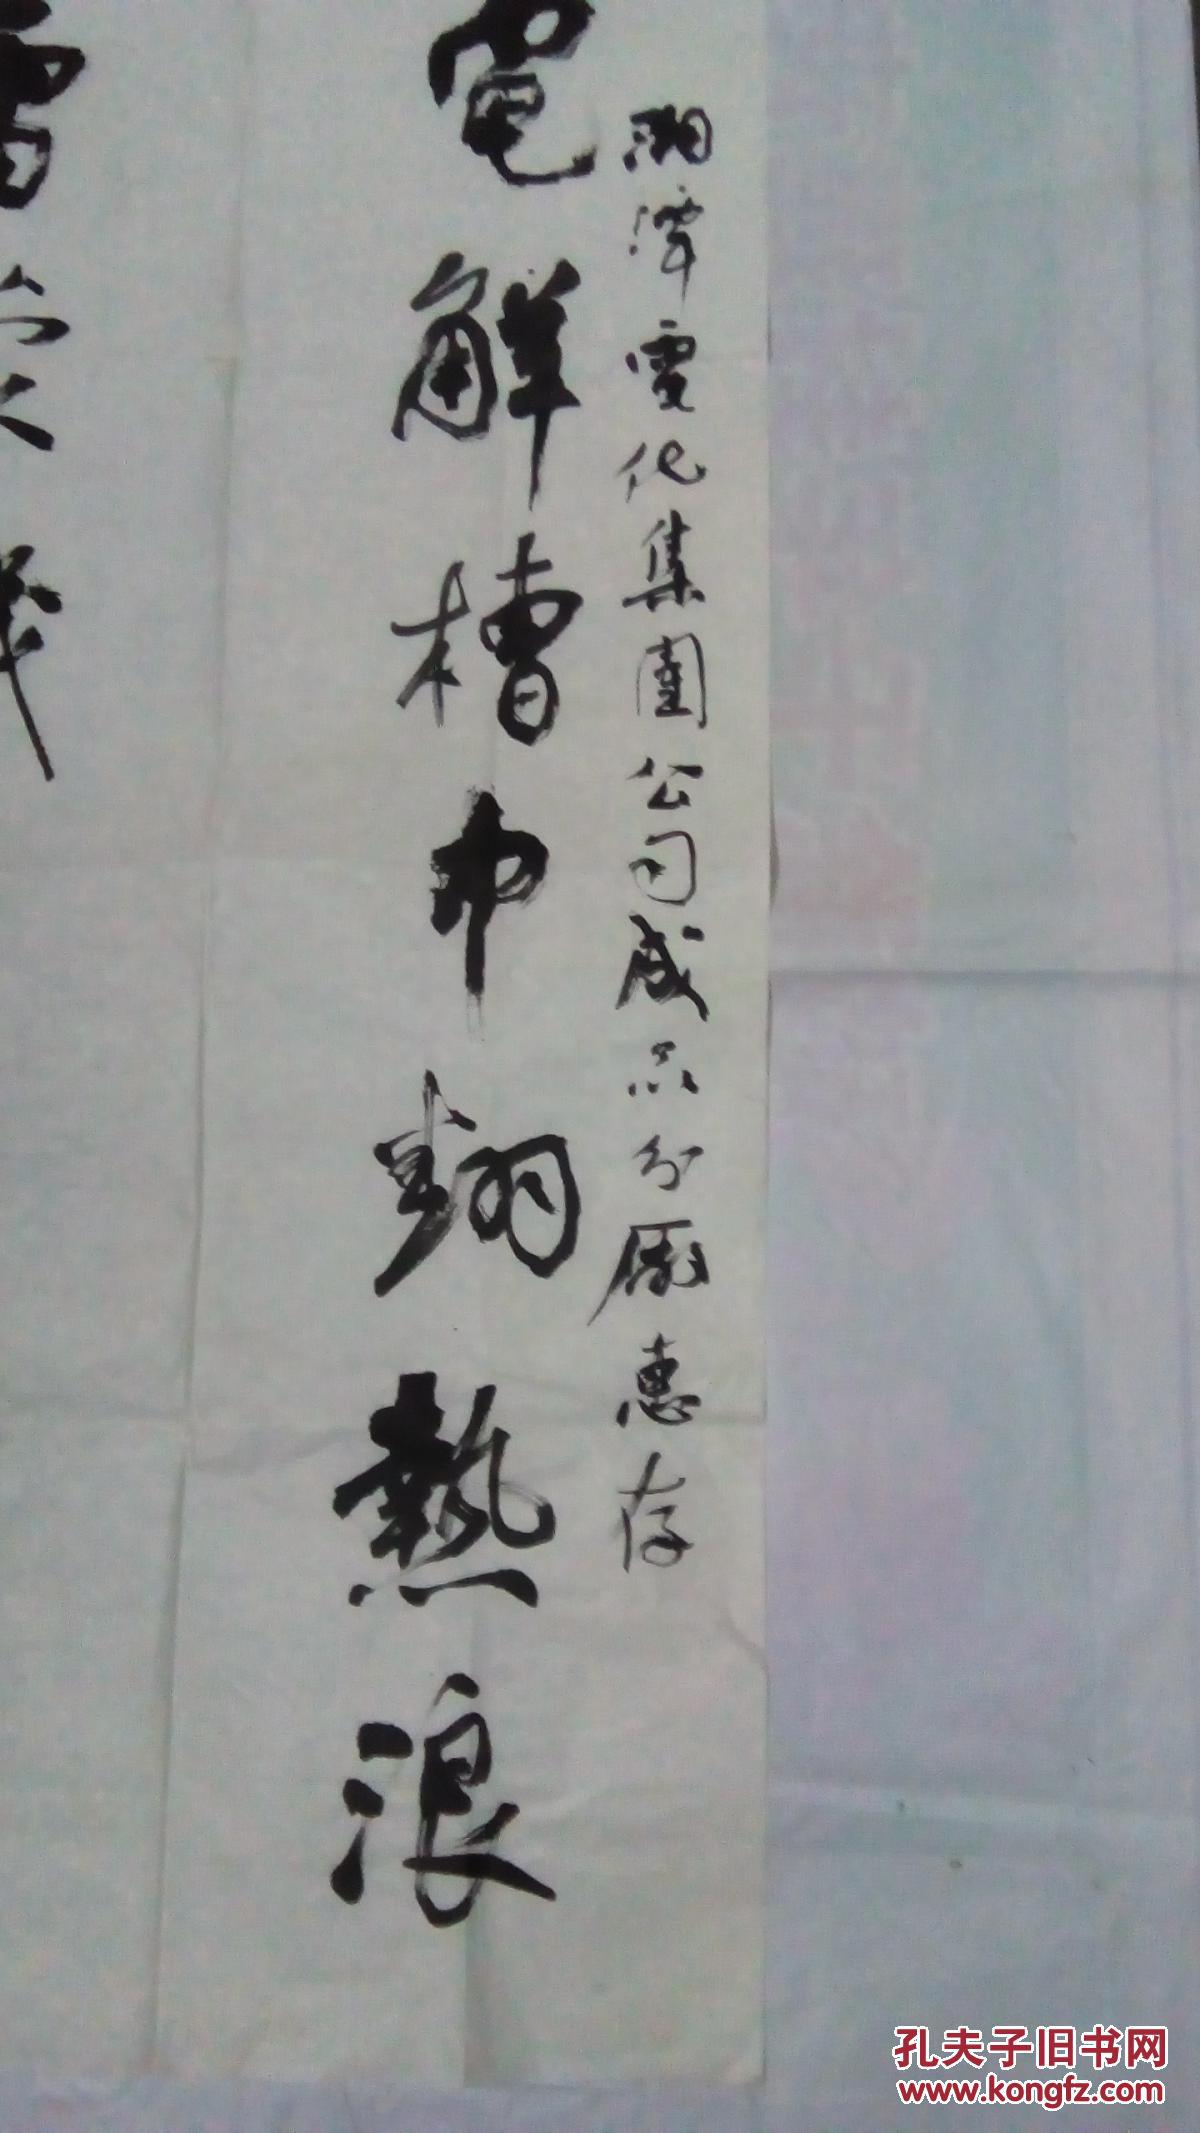 湘潭電化集團公司成品分廠惠存
電解槽中翻熱浪
孔夫子旧书网
www.kongfz.com